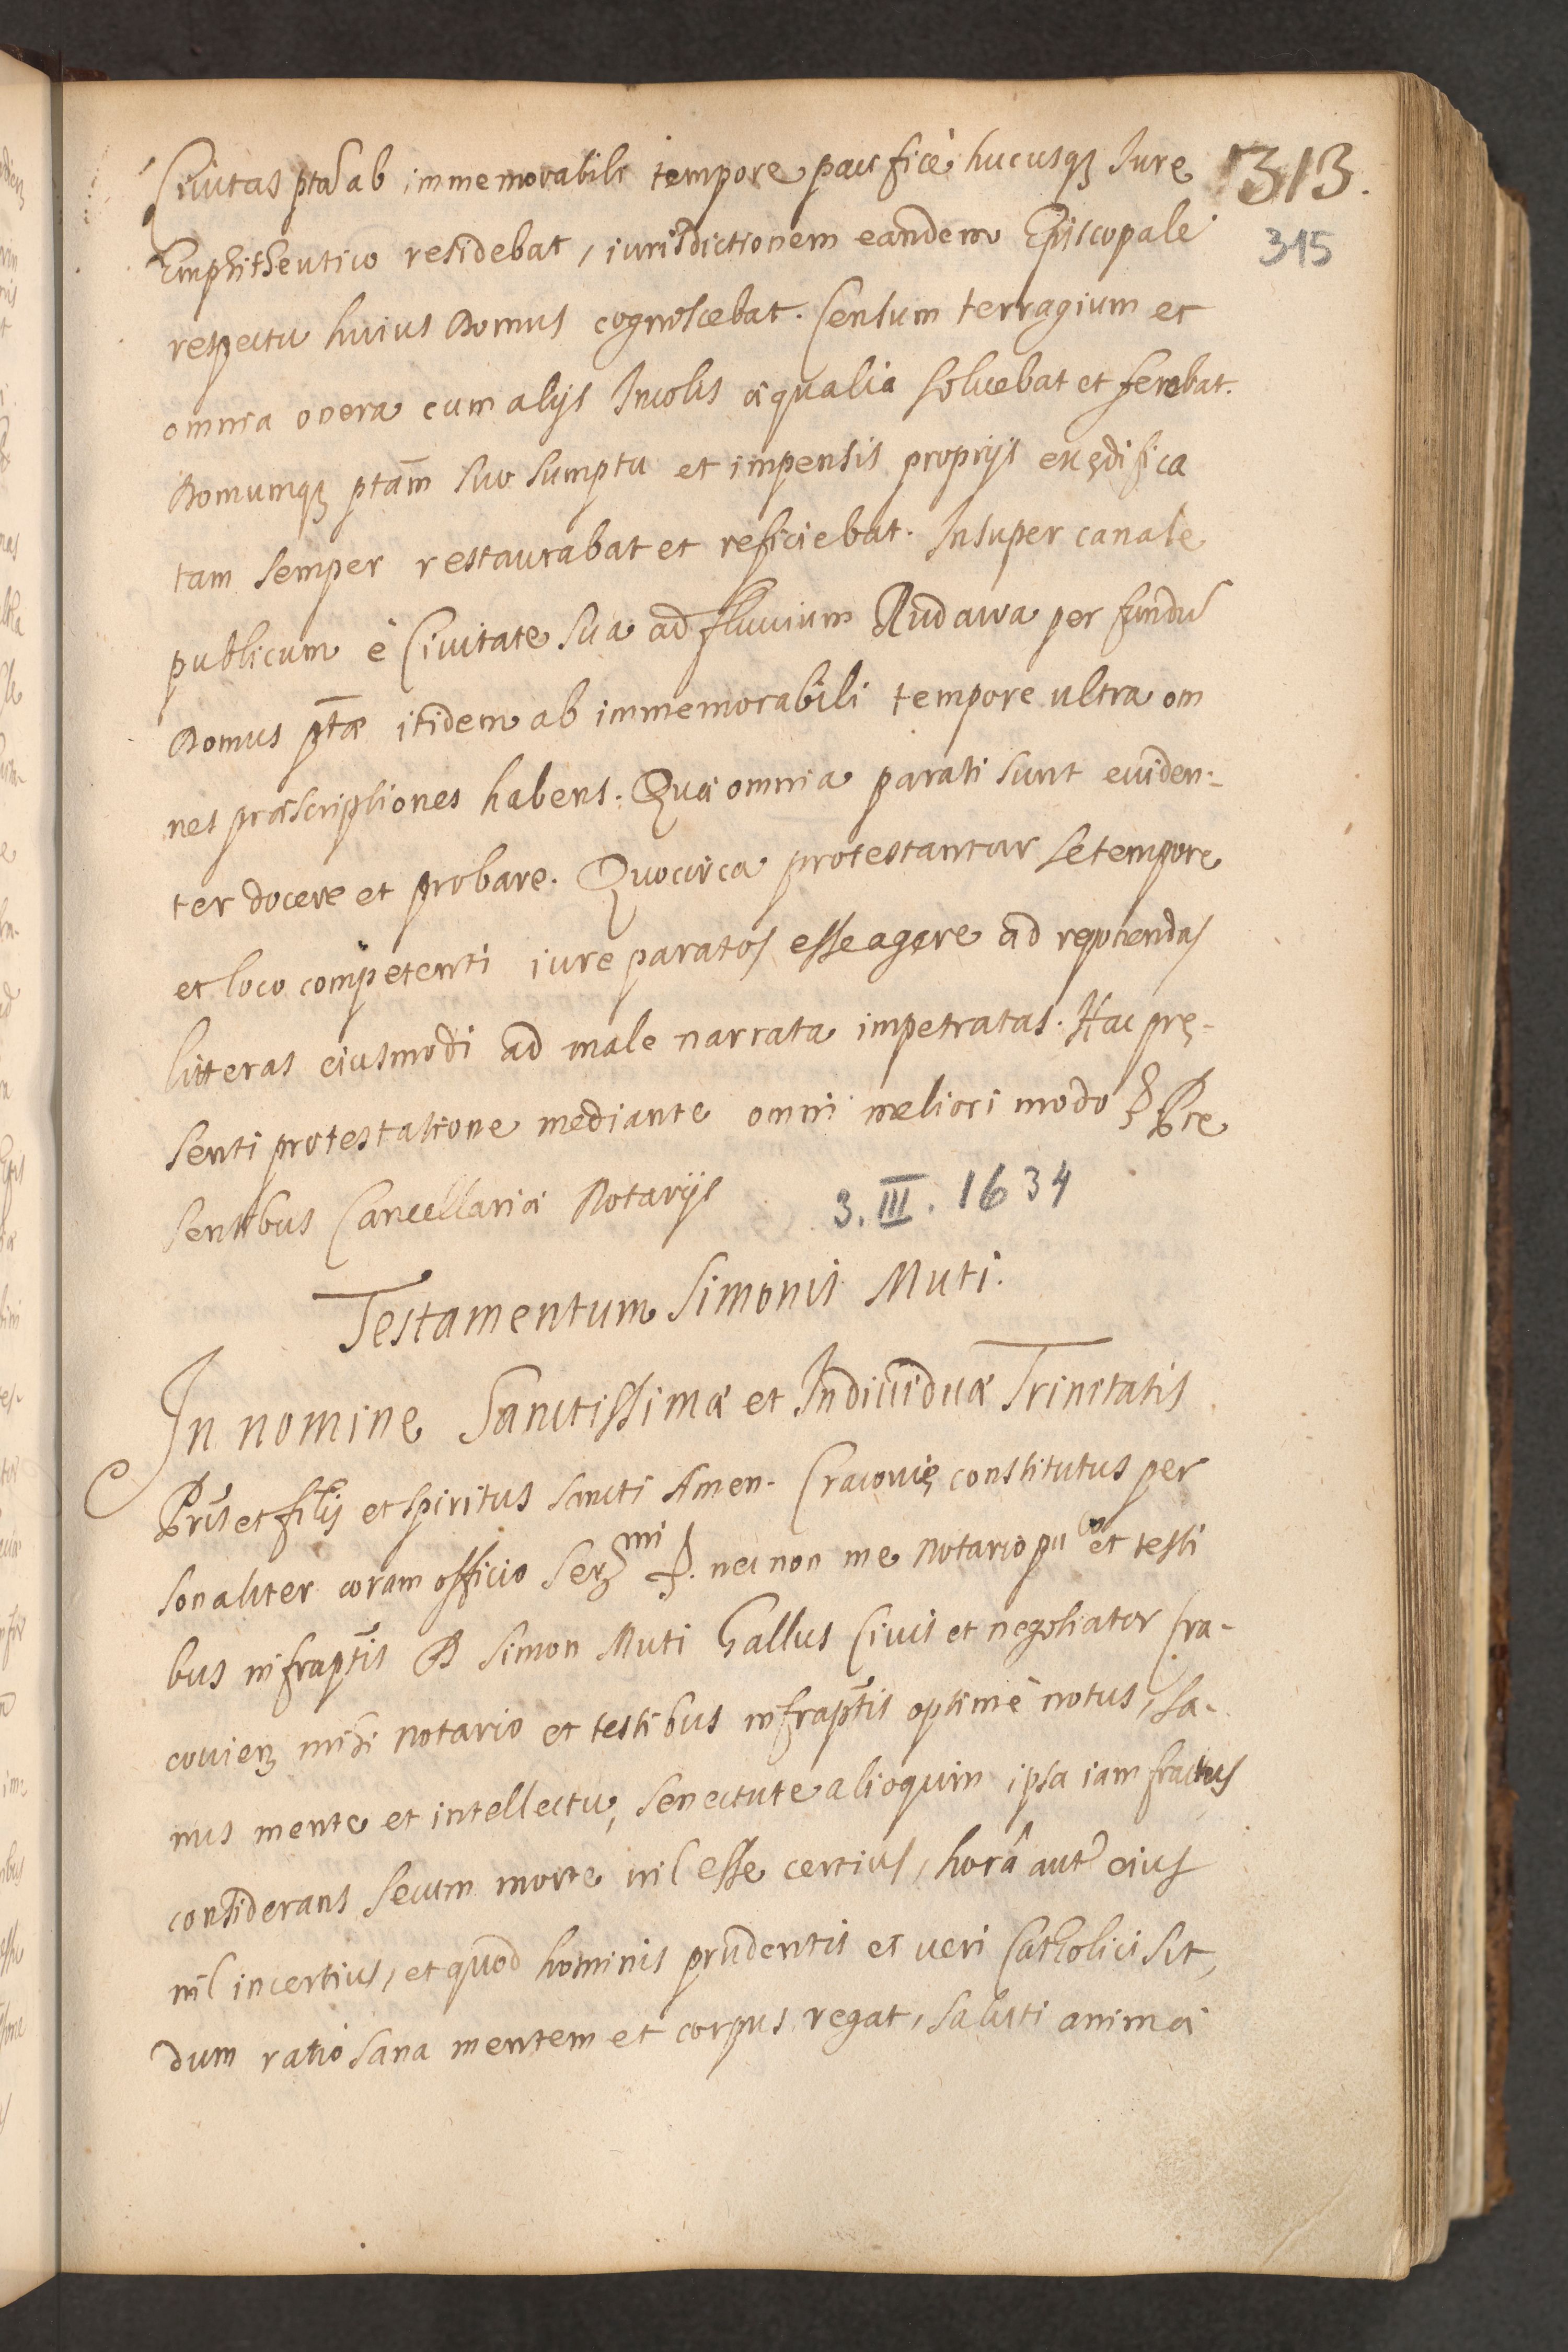 Ciuitas ptã ab immemorabili tempore pacificè hucusq₃ Iure 313.
Emphitheutico residebat, iurisdictionem eandem Episcopalẽ 315
respectu huius Domus cognoscebat. Censum terragium et
omnia onera cum alijs Incolis æqualia soluebat et ferebat.
Domumq₃ ptam̃ suo sumptu et impensis proprijs exędifica
tam semper restaurabat et reficiebat. Insuper canale
publicum è Ciuitate sua ad fluuium Rudawa per fundũ
Domus ptæ̃ itidem ab immemorabili tempore ultra om
nes præscriptiones habens. Quæ omnia parati sunt euiden-
ter docere et probare. Quocirca protestantur se tempore
et loco competenti iure paratos esse agere ad
litteras eiusmodi ad male narrata impetratas. Hac prę-
senti protestatione mediante omni meliori modo Præ
sentibus Cancellariæ Notarijs 3. III. 1634
Testamentum Simonis Muti.
In nomine Sanctissimæ et Indiuiduæ Trinitatis
Pris̃ et filij et Spiritus Sancti Amen. Cracouię constitutus per
sonaliter coram officio nec non me Notario puᶜᵒ et testi
bus infraptis̃ D Simon Muti Gallus Ciuis et negotiator Cra-
couien₃ mihi Notario et testibus infraptis̃ optimè notus, sa-
nus mente et intellectu, senectute alioquin ipsa iam fractus
considerans secum morte nil esse certius, horâ aut̃ eius
nil incertius, et quod hominis prudentis et ueri Catholici sit,
dum ratio sana mentem et corpus regat, saluti animæ